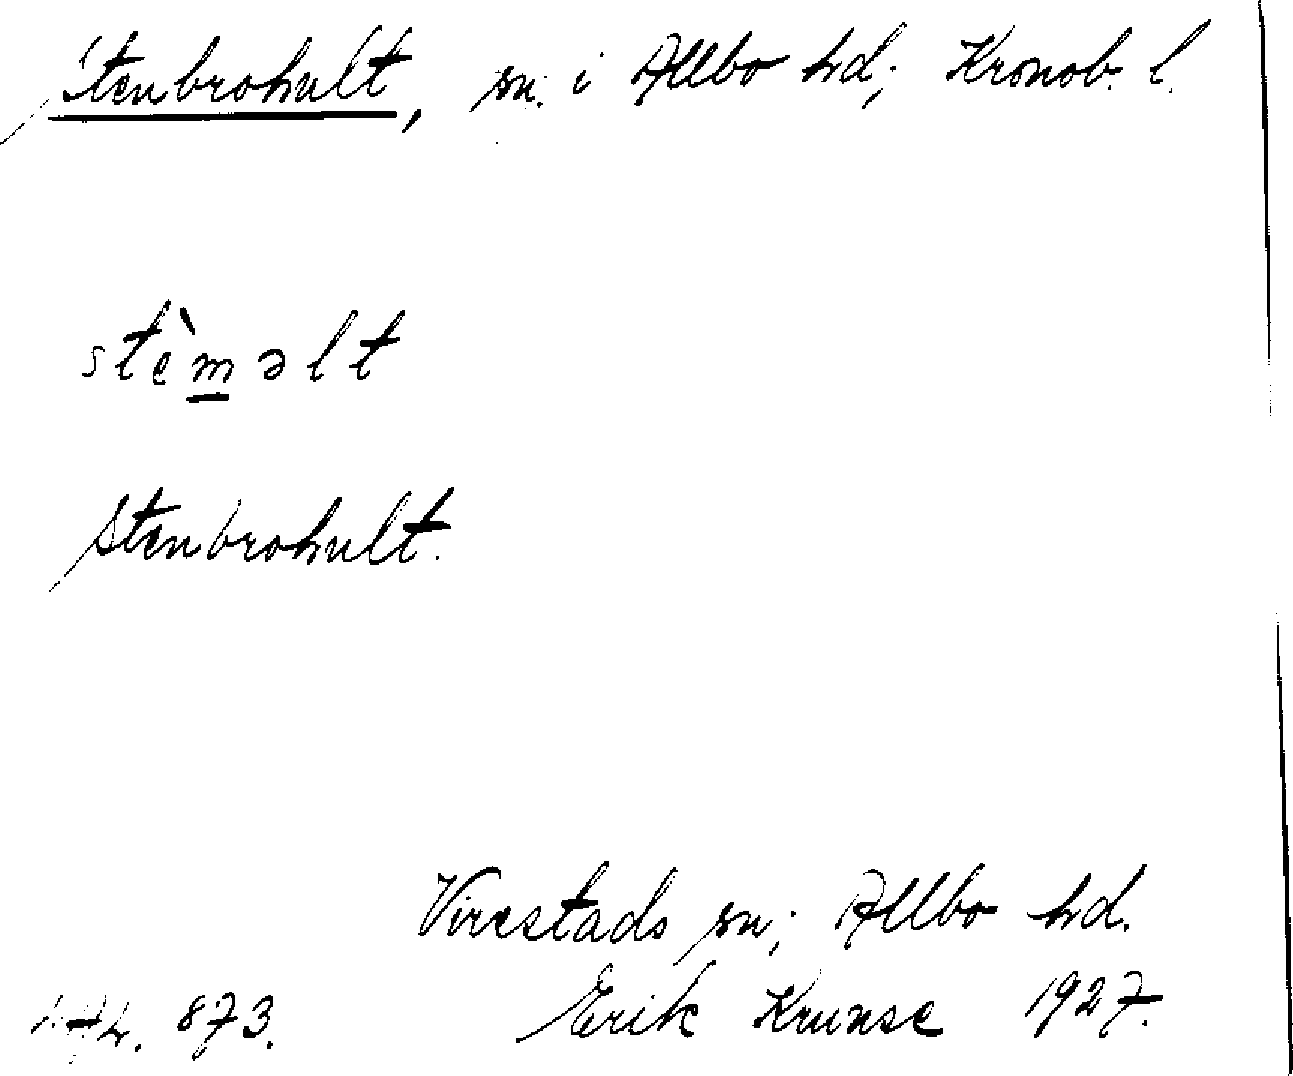 Stenbrohult, sn. i Allbo hd; Kronob. l.
stèm̲əlt
Stenbrohult.
Virestads sn; Allbo hd.
873. Erik Krunse 1927.